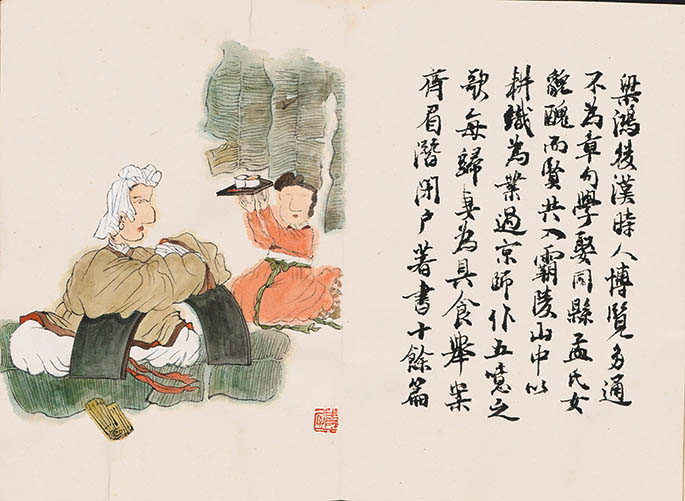 梁鴻後漢時人博覽多通
不為章句學娶同縣孟氏女
醜而賢共入霸陵山中以
耕織為業過京師作五噫之
歌每歸妻為具食舉案
齊眉潛閉戶著書十餘篇